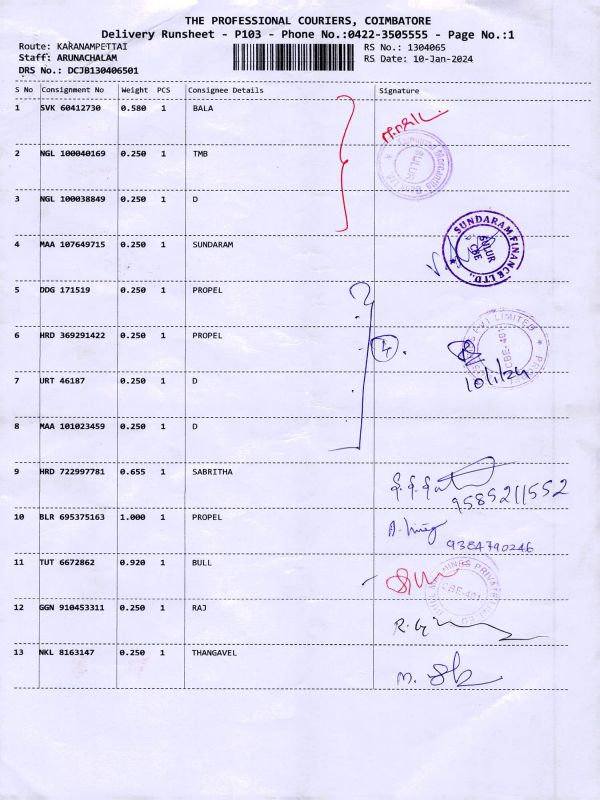 THE PROFESSIONAL COURIERS, COIMBATORE
Delivery Runsheet - P103 - Phone No.:0422-3505555 - Page No.:1
Route: KARANAMPETTAI RS No.: 1304065
Staff: ARUNACHALAM RS Date: 10-Jan-2024
DRS No.: DCJB130406501
S No Consignment No Weight PCS Consignee Details Signature
1 SVK 60412730 0.580 1 BALA
2 NGL 100040169 0.250 1 TMB
SULUR
3 NGL 100038849 0.250 1 D
4 MAA 107649715 0.250 1 SUNDARAM
SUNDARAM FINANCE LTD.,
SULUR
CBE
5 DDG 171519 0.250 1 PROPEL
6 HRD 369291422 0.250 1 PROPEL
4.
10/1/24
7 URT 46187 0.250 1 D
8 MAA 101023459 0.250 1 D
9 HRD 722997781 0.655 1 SABRITHA
9585211552
10 BLR 695375163 1.000 1 PROPEL
9384790246
11 TUT 6672862 0.920 1 BULL
12 GGN 910453311 0.250 1 RAJ
13 NKL 8163147 0.250 1 THANGAVEL